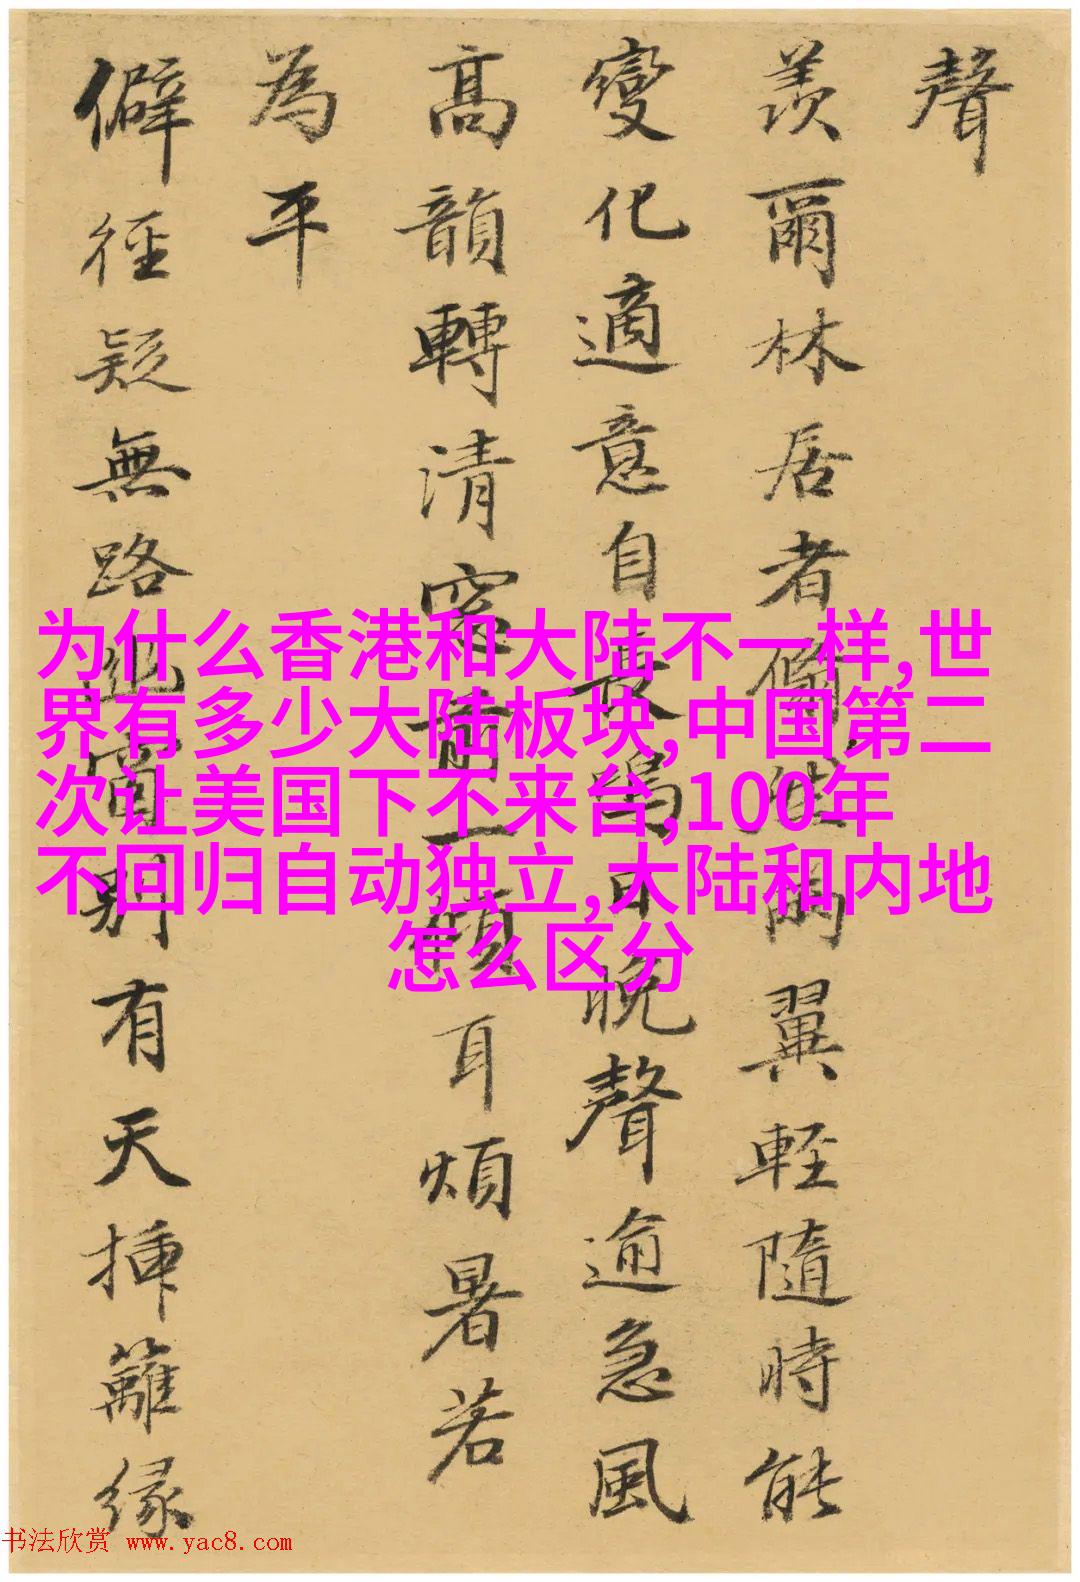 聲
羨爾林居者翼輕隨時能
變化適意自長鳴日晚聲逾急風
高韻轉清窓前一傾耳煩暑若
為平
僻徑疑無路幽窗別有天挿籬緣
为什么香港和大陆不一样,世
界有多少大陆板块,中国第二
次让美国下不来台,100年
不回归自动独立,大陆和内地
怎么区分
书法欣赏 www.yac8.com